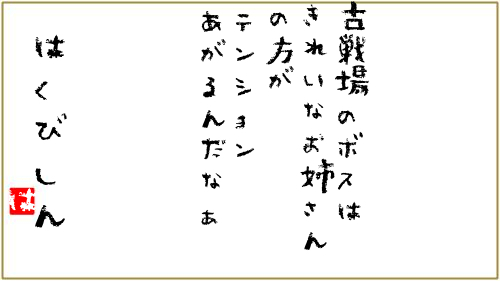 古戦場のボスは
きれいなお姉さん
の方が
テンション
あがるんだなぁ
はくびしん
は